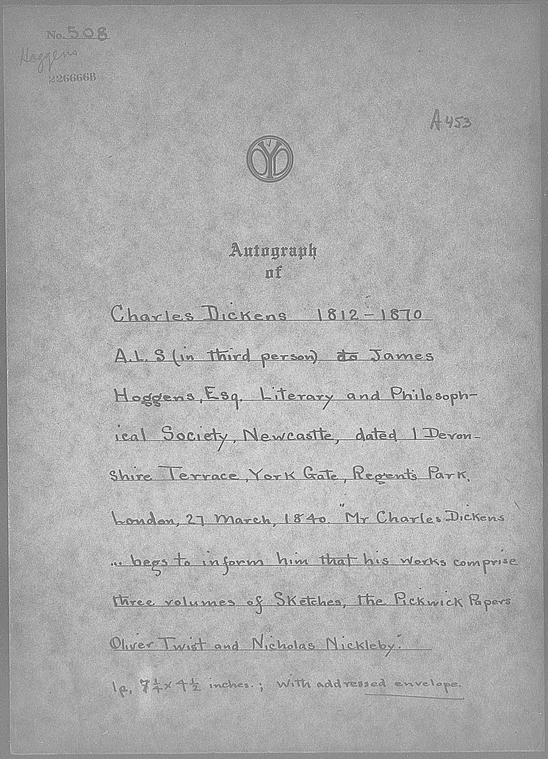 No. 508
Hoggens
226666B
A453
Autograph
of
Charles Dickens 1812-1870
A.L.S (in third person) to James
Hoggens, Esq. Literary and Philosoph-
ical Society, Newcastle, dated 1 Devon-
shire Terrace, York Gate, Regent's Park,
London, 27 March, 1840. "Mr Charles Dickens
... begs to inform him that his works comprise
three volumes of Sketches, the Pickwick Papers
Oliver Twist and Nicholas Nickleby."
1p, 7¼ x 4½ inches.; with addressed envelope.